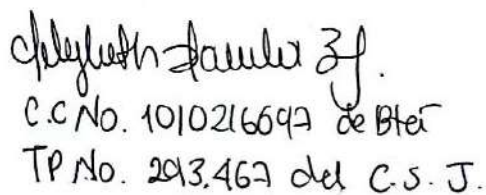 C.C No. 1010216697 de Btá
TP No. 293.467 del C.S.J.